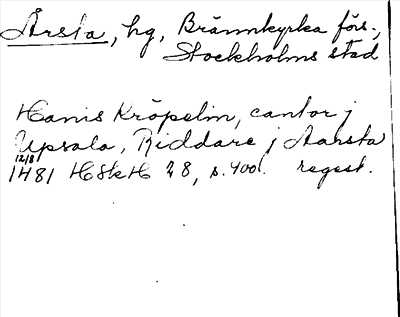 Årsta, hg, Brännkyrka förs.,
Stockholms stad
Hanis Kröpelin, cantor j
Upsala, Riddare j Aarsta
12/8
1481 HSkH 28, s. 400. regest.